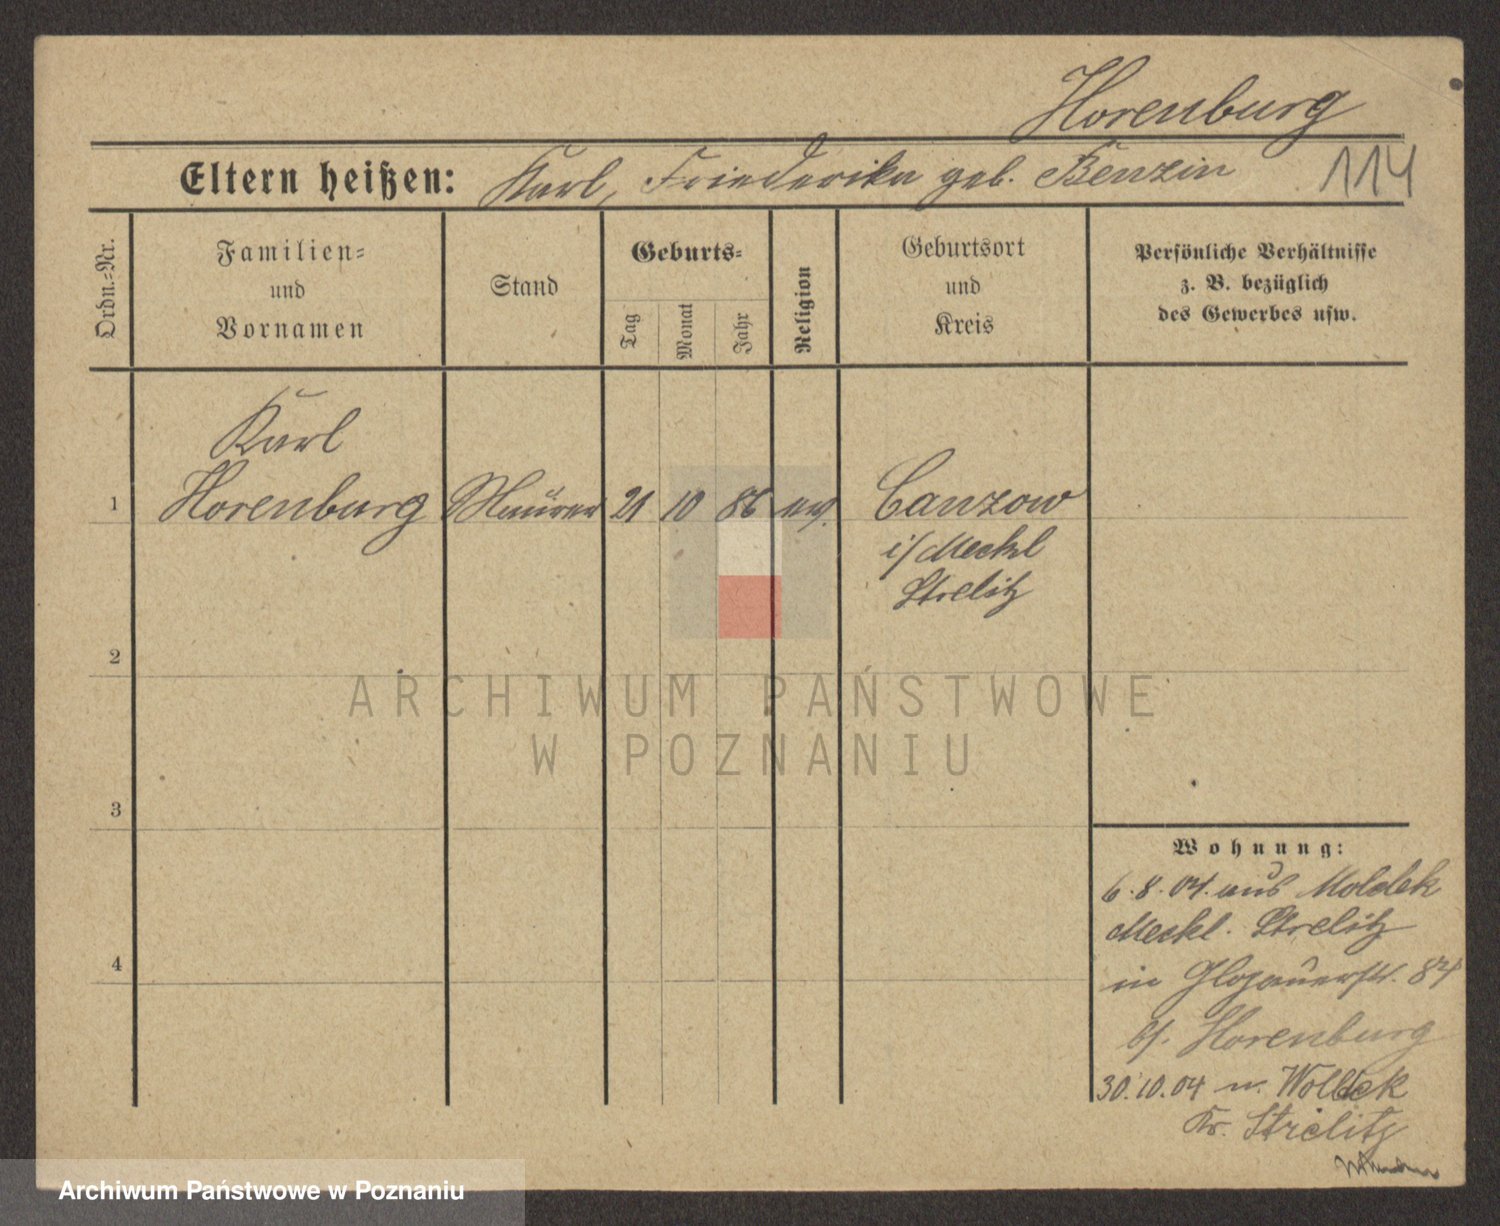 Horenburg
Eltern heißen: Karl, Friederika geb. Benzin
114
Ordn.=Nr.
Familien=
und
Vornamen
Stand
Geburts=
Tag
Monat
Jahr
Religion
Geburtsort
und
Kreis
Persönliche Verhältnisse
z. B. bezüglich
des Gewerbes usw.
Karl
1 Horenburg Maurer 21 10 86 ev. Canzow
i/Meckl
Strelitz
2
ARCHIWUM PAŃSTWOWE
W POZNANIU
3
4
Wohnung:
6.8.04. aus
Meckl. Strelitz
in Glogauerstr. 84
b/. Horenburg
30.10.04 n. Woldek
Kr. Strelitz
Archiwum Państwowe w Poznaniu